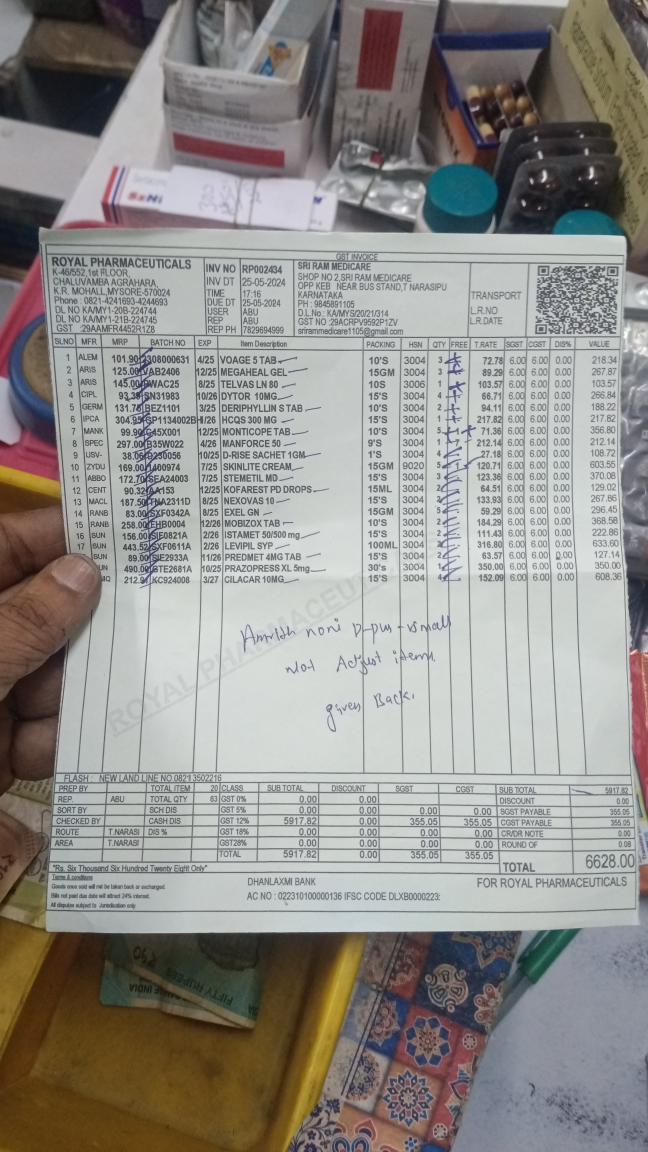 GST INVOICE
ROYAL PHARMACEUTICALS
K-46/552,1st FLOOR,
CHALUVAMBA AGRAHARA,
K.R. MOHALL,MYSORE-570024
Phone : 0821-4241693-4244693
DL NO KA/MY1-20B-224744
DL NO KA/MY1-21B-224745
GST :29AAMFR4452R1Z8
INV NO RP002434
INV DT 25-05-2024
TIME 17:16
DUE DT 25-05-2024
USER ABU
REP ABU
REP PH 7829694999
SRI RAM MEDICARE
SHOP NO 2,SRI RAM MEDICARE
OPP KEB NEAR BUS STAND,T NARASIPU
KARNATAKA
PH : 9845891105
D.L.No.: KA/MYS/20/21/314
GST NO :29ACRPV9592P1ZV
srirammedicare1105@gmail.com
TRANSPORT
L.R.NO
L.R.DATE
SLNO MFR MRP BATCH NO EXP Item Description PACKING HSN QTY FREE T.RATE SGST CGST DIS% VALUE
1 ALEM 101.90 2308000631 4/25 VOAGE 5 TAB 10'S 3004 3 72.78 6.00 6.00 0.00 218.34
2 ARIS 125.00 VAB2406 12/25 MEGAHEAL GEL 15GM 3004 3 89.29 6.00 6.00 0.00 267.87
3 ARIS 145.00 WAC25 8/25 TELVAS LN 80 10S 3006 1 103.57 6.00 6.00 0.00 103.57
4 CIPL 93.39 SN31983 10/26 DYTOR 10MG 15'S 3004 4 66.71 6.00 6.00 0.00 266.84
5 GERM 131.76 BEZ1101 3/25 DERIPHYLLIN S TAB 10'S 3004 2 94.11 6.00 6.00 0.00 188.22
6 IPCA 304.95 GP1134002B 1/26 HCQS 300 MG 15'S 3004 1 217.82 6.00 6.00 0.00 217.82
7 MANK 99.90 45X001 12/25 MONTICOPE TAB 10'S 3004 5 71.36 6.00 6.00 0.00 356.80
8 SPEC 297.00 B35W022 4/26 MANFORCE 50 9'S 3004 1 212.14 6.00 6.00 0.00 212.14
9 USV- 38.06 250056 10/25 D-RISE SACHET 1GM 1'S 3004 4 27.18 6.00 6.00 0.00 108.72
10 ZYDU 169.00 400974 7/25 SKINLITE CREAM 15GM 9020 5 120.71 6.00 6.00 0.00 603.55
11 ABBO 172.70 SEA24003 7/25 STEMETIL MD 15'S 3004 3 123.36 6.00 6.00 0.00 370.08
12 CENT 90.32 AA153 12/26 KOFAREST PD DROPS 15ML 3004 2 64.51 6.00 6.00 0.00 129.02
13 MACL 187.50 NA2311D 8/25 NEXOVAS 10 15'S 3004 2 133.93 6.00 6.00 0.00 267.86
14 RANB 83.00 SXF0342A 8/25 EXEL GN 15GM 3004 5 59.29 6.00 6.00 0.00 296.45
15 RANB 258.00 EHB0004 12/26 MOBIZOX TAB 10'S 3004 2 184.29 6.00 6.00 0.00 368.58
16 SUN 156.00 SIF0821A 2/26 ISTAMET 50/500 mg 15'S 3004 2 111.43 6.00 6.00 0.00 222.86
17 SUN 443.52 SXF0611A 2/26 LEVIPIL SYP 100ML 3004 2 316.80 6.00 6.00 0.00 633.60
SUN 89.00 SIE2933A 11/26 PREDMET 4MG TAB 15'S 3004 2 63.57 6.00 6.00 0.00 127.14
490.00 BTE2681A 10/25 PRAZOPRESS XL 5mg 30's 3004 1 350.00 6.00 6.00 0.00 350.00
212.9 KC924008 3/27 CILACAR 10MG 15'S 3004 4 152.09 6.00 6.00 0.00 608.36
Amrith noni D-plus - small
Not Adjust item
given Back.
ROYAL PHARMACEU
FLASH : NEW LAND LINE NO.0821 3502216
PREP BY TOTAL ITEM 20 CLASS SUB TOTAL DISCOUNT SGST CGST SUB TOTAL 5917.82
REP. ABU TOTAL QTY 63 GST 0% 0.00 0.00 DISCOUNT 0.00
SORT BY SCH DIS GST 5% 0.00 0.00 0.00 0.00 SGST PAYABLE 355.05
CHECKED BY CASH DIS GST 12% 5917.82 0.00 355.05 355.05 CGST PAYABLE 355.05
ROUTE T.NARASI DIS % GST 18% 0.00 0.00 0.00 0.00 CR/DR NOTE 0.00
AREA T.NARASI GST28% 0.00 0.00 0.00 0.00 ROUND OF 0.08
TOTAL 5917.82 0.00 355.05 355.05 TOTAL 6628.00
"Rs. Six Thousand Six Hundred Twenty Eight Only"
Terms & conditions
Goods once sold will not be taken back or exchanged.
Bills not paid due date will attract 24% interest.
All disputes subject to Jurisdication only.
DHANLAXMI BANK
AC NO : 022310100000136 IFSC CODE DLXB0000223:
FOR ROYAL PHARMACEUTICALS
FIFTY RUPEES